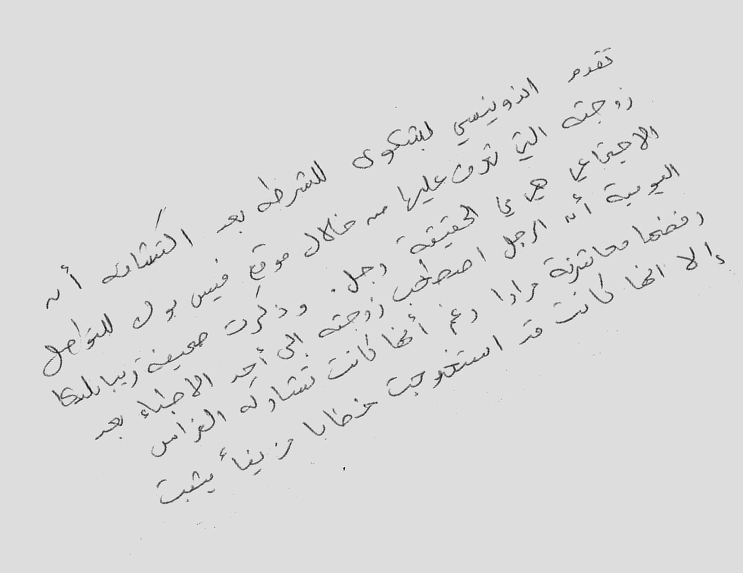 تقدم اندونيسي بشكوى للشرطه بعد اكتشافه أنه
زوجته التي تعرف عليها من خلال موقع فيس بوك للتواصل
الاجتماعي هي في الحقيقة رجل. وذكرت صحيفة ريبابليكا
اليومية أنه الرجل اصطحب زوجته إلى أحد الاطباء بعد
رفضها معاشرته مرارا رغم أنها كانت تشاركه الفراش
إلا انها كانت قد استخرجت خطابا مزيفاً يثبت